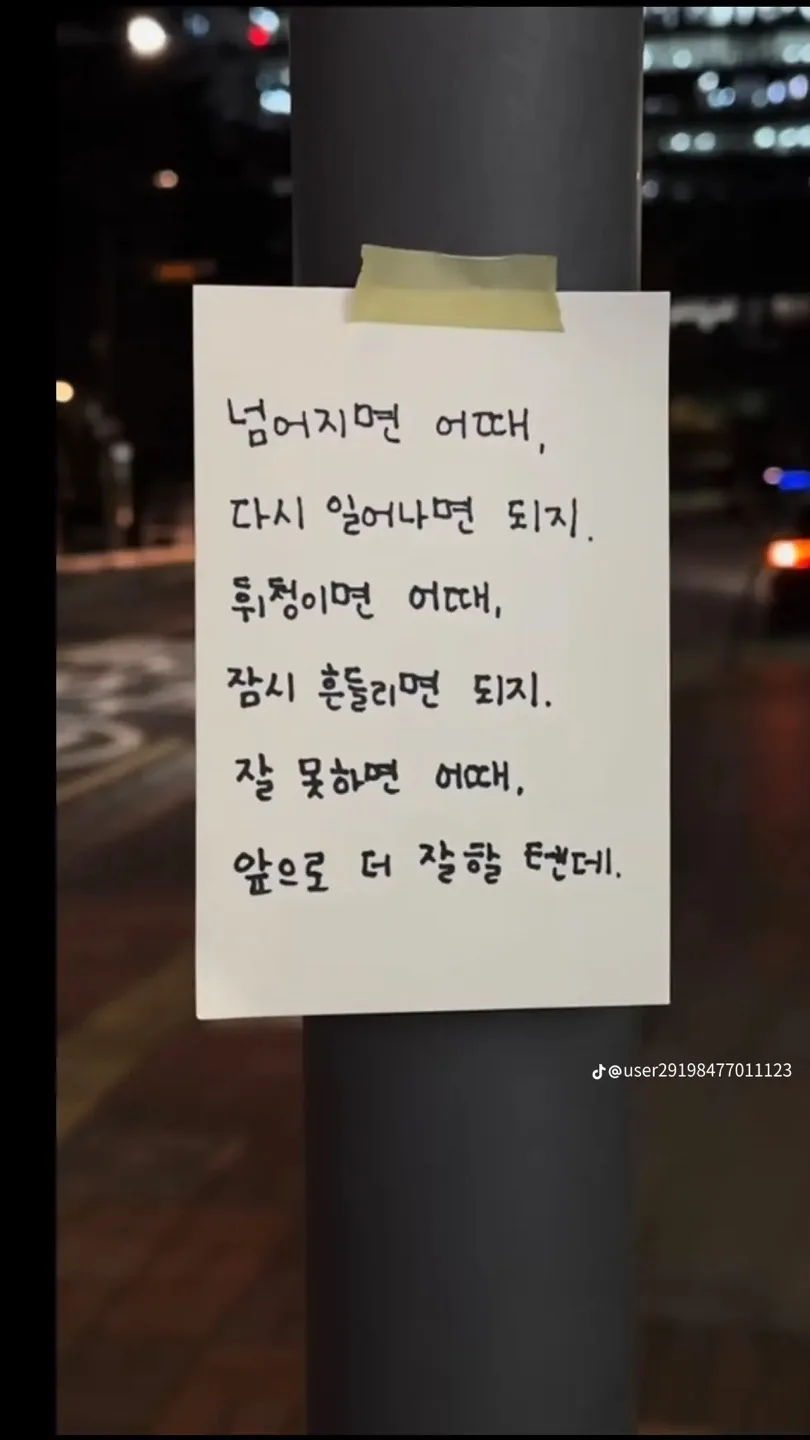 넘어지면 어때,
다시 일어나면 되지.
휘청이면 어때,
잠시 흔들리면 되지.
잘 못하면 어때,
앞으로 더 잘할 텐데.
@user29198477011123